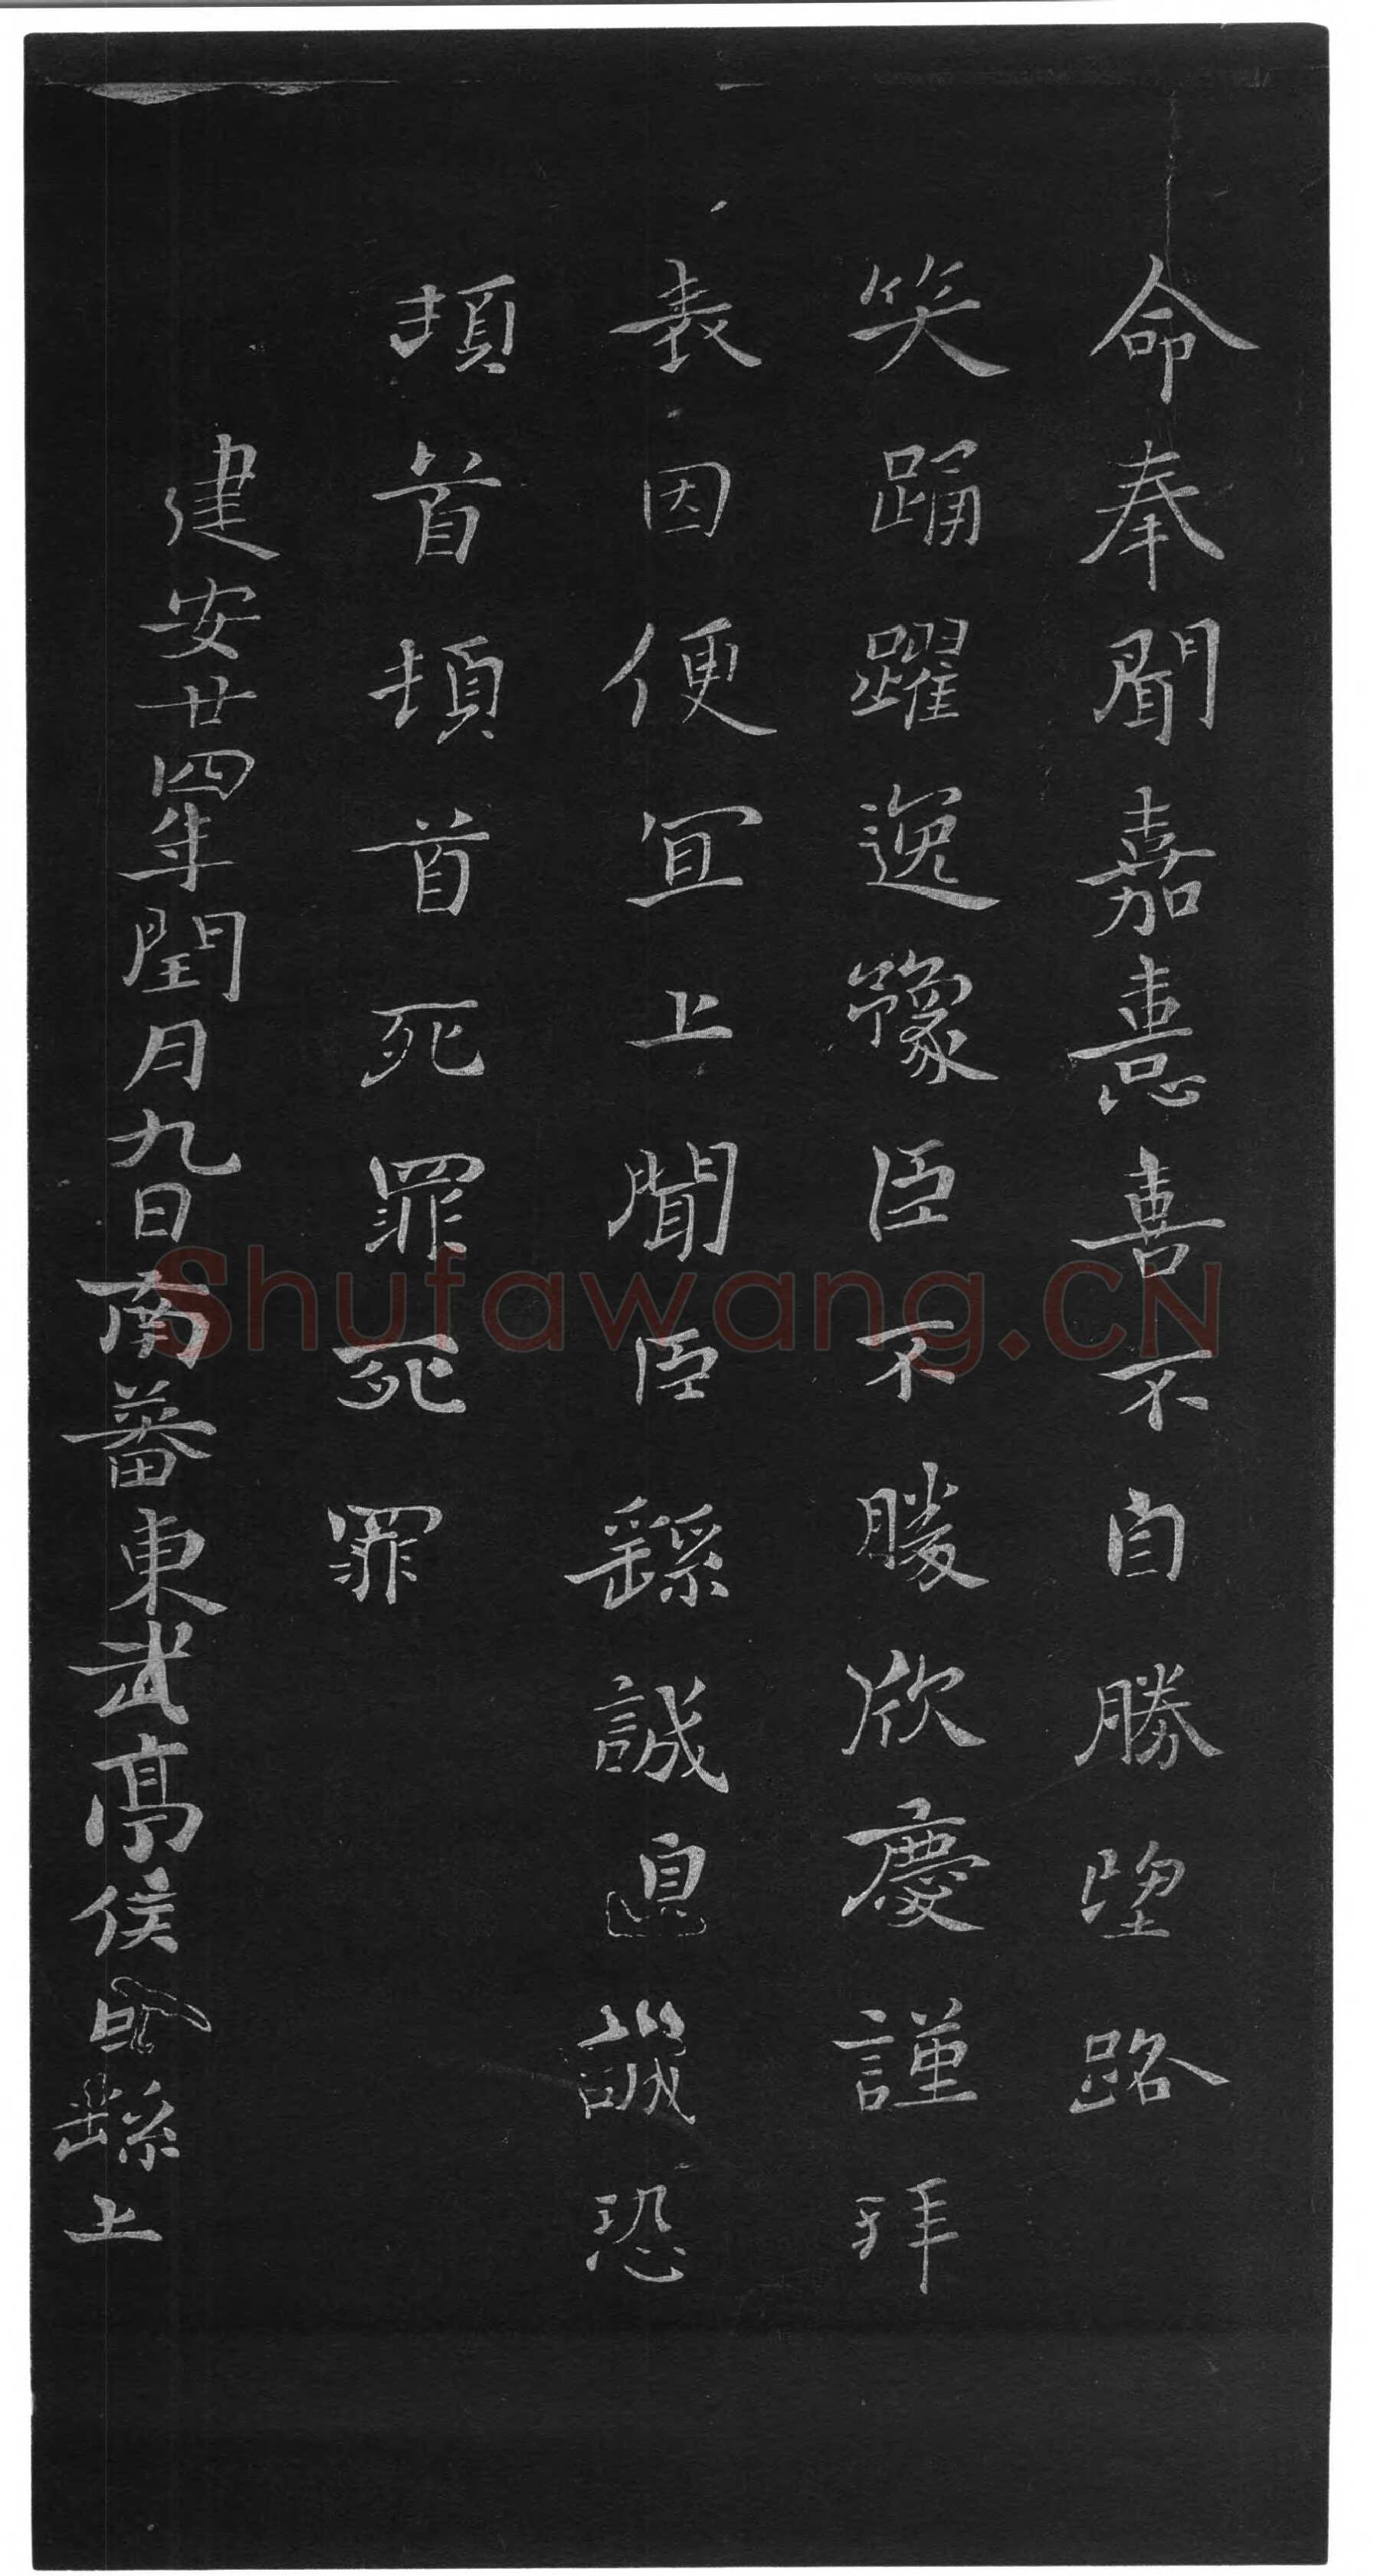 命奉聞嘉憙喜不自勝望路
笑踊躍逸豫臣不勝欣慶謹拜
表因便宜上聞臣繇誠皇誠恐
頓首頓首死罪死罪
建安廿四年閏月九日南蕃東武亭侯臣繇上
Shufawang.CN